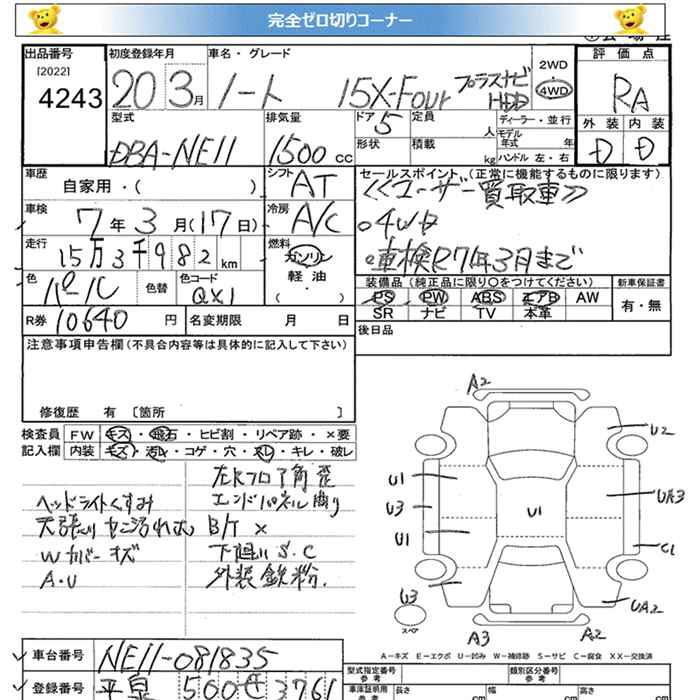 完全ゼロ切りコーナー
出品番号 初度登録年月 車名・グレード 評価点
[2022]
4243 20 3月 ノート 15X-Four プラスナビ HDD 2WD 4WD RA
型式 排気量 ドア 5 定員 人 ディーラー・並行 外装 内装
DBA-NE11 1500 cc 形状 積載 kg モデル年式 年 ハンドル 左・右 D D
車歴 自家用・( ) シフト AT セールスポイント(正常に機能するものに限ります)
《ユーザー買取車》
車検 7年3月(17日) 冷房 A/C 4WD
走行 15万3千982km 燃料 ガソリン 軽油 ( ) 車検R7年3月まで
色 パール 色替 色コード QX1 装備品(純正品に限り○をつけてください) 新車保証書
PS PW ABS エアB AW 有・無
R券 10640円 名変期限 月 日 SR ナビ TV 本革
注意事項申告欄(不具合内容等は具体的に記入して下さい) 後日品
修復歴 有 〔箇所 〕
検査員 FW キズ・飛石・ヒビ割・リペア跡・×要
記入欄 内装 キズ・汚レ・コゲ・穴・スレ・キレ・破レ
ヘッドライトくすみ エンドパネル曲り
B/T ×
Wカバーキズ 下廻りS.C
A.U 外装鉄粉.
A2
U2
U1
U3 U1 UA3
U1 C1
U3 UA2
スペア
A3 A2
A-キズ E-エクボ U-凹み W-補修跡 S-サビ C-腐食 XX-交換済
車台番号 NE11-081835 型式指定番号 参考 類別区分番号 参考
登録番号 平泉 500 せ 3761 車庫証明用 参考 長さ cm 幅 cm 高さ cm